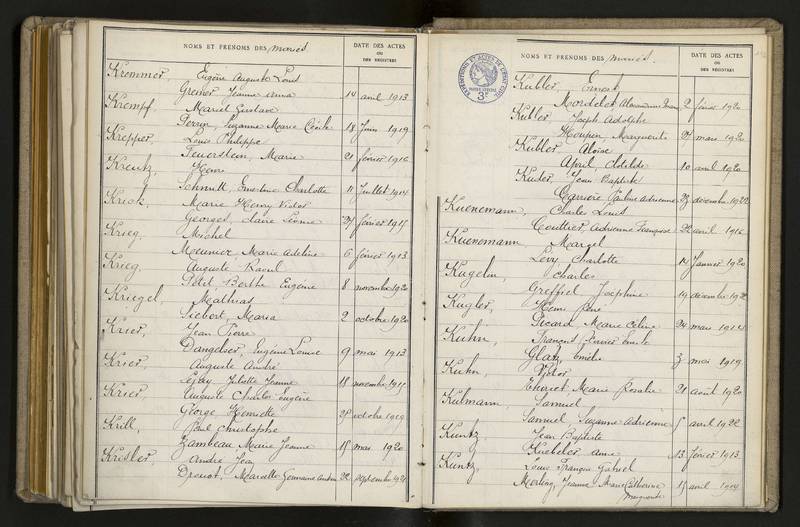 NOMS ET PRÉNOMS DES mariés
DATE DES ACTES
OU
DES REGISTRES
Kremmer, Eugène Auguste Louis
Greiner Jeanne Anna 14 avril 1913
Krempf, Marcel Gustave
Perrin, Suzanne Marie Cécile 18 Juin 1919
Krepper, Louis Philippe
Feuerstein, Marie 21 février 1916
Kreutz, Henri
Schmitt, Ernestine Charlotte 11 Juillet 1914
Marie Henry Victor
Georges, Claire Léonie 27 février 1917
Krieg, Michel
Meunier Marie Adeline 6 février 1913
Krieg, Auguste Raoul
Petit, Berthe Eugénie 8 novembre 1920
Kriegel, Mathias
Siebert, Maria 2 octobre 1920
Krier, Jean Pierre
Dangelser, Eugénie Louise 9 mai 1913
Krier, Auguste André
Juliette Jeanne 18 novembre
Krier, Auguste Charles Eugène
George Henriette 25 octobre 1919
Krill, Paul Christophe
Zambeau Marie Jeanne 15 mai 1920
André Jean
Drouot, Marcelle Germaine 22 septembre
NOMS ET PRÉNOMS DES mariés.
DATE DES ACTES
OU
DES REGISTRES
Kubler, Ernest
Mordelet 2 février 1920
Kubler, Joseph Adolphe
Houpin, Marguerite 27 mars 1920
Kubler Aloïse
April, Clotilde 10 avril 1920
Kuder, Jean Baptiste
Carrière, Pauline Adrienne 23 décembre 1922
Kuenemann, Charles Louis
Coultier, Adrienne Françoise 22 avril
Kuenemann Marcel
Levy Charlotte 14 Janvier 1920
Kugelin, Charles
Greffiel Joséphine 19 décembre
Kugler, Henri René
Picard, Marie Céline 24 mars 1914
Kuhn, François Xavier Emile
Glatz, Emélie 3 mai 1919
Kuhn, Victor
Marie Rosalie 21 août 1920
Kulmann, Samuel
Samuel, Suzanne Adrienne 5 avril 1922
Kuntz, Jean Baptiste
Kuebeler Anne 13 février 1913
Kuntz, Louis François Gabriel
Merling, Jeanne Marie Catherine 15 avril
Marguerite